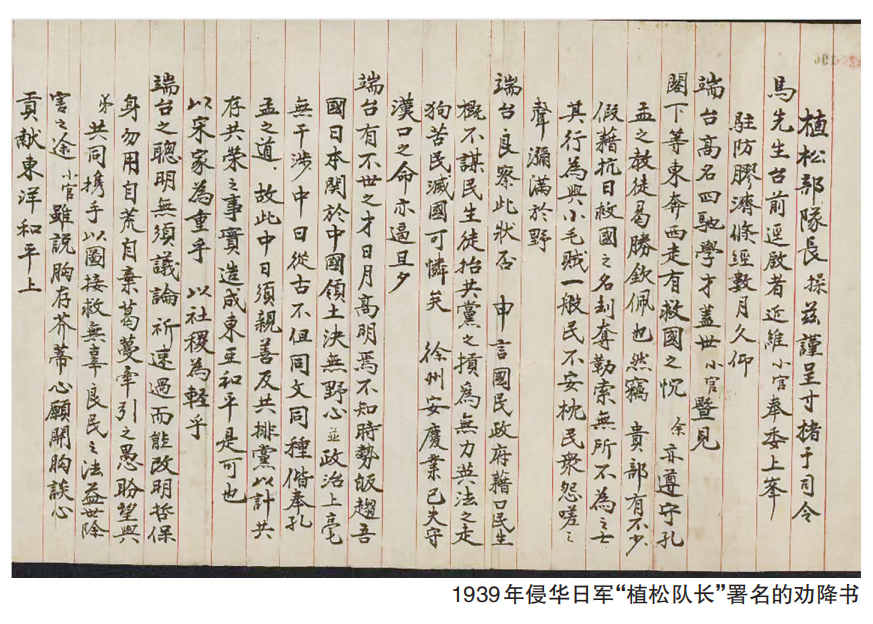 植松部隊長 操茲謹呈寸楮于司令
馬先生台前逕啟者近維小官奉委上峯
駐防膠濟條經數月久仰
端台高名四馳學才蓋世小官暨見
閣下等東奔西走有救國之忱 余亦遵守孔
孟之教徒曷勝欽佩也然竊 貴部有不少
假藉抗日救國之名刦奪勒索無所不為之士
其行為與小毛賊一般民不安枕民衆怨嗟之
聲瀰滿於野
端台良察此狀否 申言國民政府藉口民生
概不謀民生徒抬共黨之摃為無力共法之走
狗苦民滅國可憐笑 徐州安慶業已失守
漢口之命亦逼旦夕
端台有不世之才日月高明焉不知時勢皈趨吾
國日本關於中國領土決無野心並政治上毫
無干涉中日從古不但同文同種偕奉孔
孟之道、故此中日須親善反共排黨以計共
存共荣之事實造成東亜和平是可也
以宋家為重乎 以社稷為輕乎
端台之聰明無須議論祈速過而能改明哲保
身勿用自荒自棄葛蔓牽引之愚盼望與
弟共同携手以圖接救無辜良民之法益世除
害之途小官雖說胸存芥蒂心願開胸談心
貢献東洋和平上
1939年侵华日军“植松队长”署名的劝降书